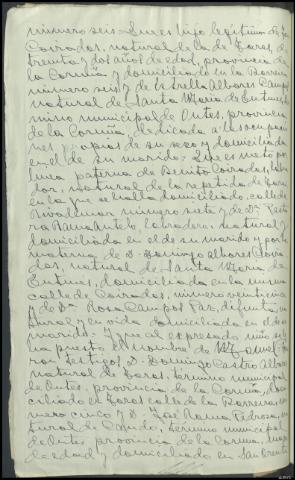 número seis. Que es hijo legítimo de José
Coirados, natural de la de Boros, de
treinta y dos años de edad, provincia de
la Coruña y domiciliado en la Barreira
número seis y de Estrella Albores Campos
natural de Santa María de Entines, tér
mino municipal de Outes, provincia
de la Coruña, dedicada a las ocupacio
nes propias de su sexo y domiciliada
en el de su marido: Que es nieto por
línea paterna de Benito Coirados, labra
dor, natural de la repetida de
en la que se halla domiciliado, calle de
número siete y de Dª
labradora, natural y
domiciliada en el de su marido y por la
materna de D. Domingo Albores
dor, natural de Santa María de
Entines, domiciliado en la misma
calle de Coirados, número
y de Dª Rosa Campos Paz, difunta, na
tural y en vida domiciliada en el de su
marido: Y que al expresado niño se le
ha puesto el nombre de Manuel.
Son testigos, D. Domingo Castro Albores
natural de término municipal
de Outes, provincia de la Coruña, domi
ciliado en calle de la Barreira nú
mero cinco y D. José Rama Pedrosa, na
tural de término municipal
de Outes, provincia de la Coruña, mayor
de edad y domiciliado en San Orente